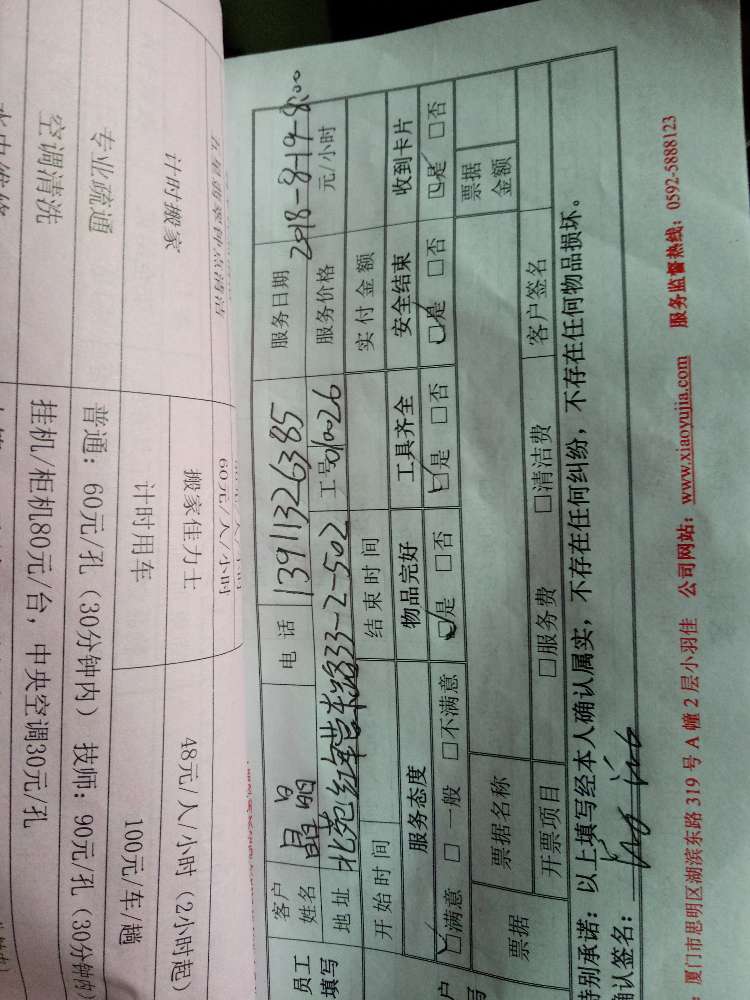 专业疏通
空调清洗
计时搬家
搬家佳力士
计时用车
60元/人/小时
48元/人/小时（2小时起）
100元/车/趟
普通：60元/孔（30分钟内） 技师：90元/孔（30分钟内）
挂机/柜机80元/台，中央空调30元/孔
员工
填写
客户
姓名
晶晶
电 话
13911326385
服务日期
2018-8-19-8:00
地 址
北苑红军营东路833-2-502
工号
01026
服务价格
元/小时
开始时间
结束时间
实付金额
服务态度
物品完好
工具齐全
安全结束
收到卡片
☑满意 □一般 □不满意
☑是 □否
☑是 □否
☑是 □否
☑是 □否
票据
票据名称
票据
金额
开票项目
□服务费
□清洁费
客户签名
特别承诺：以上填写经本人确认属实，不存在任何纠纷，不存在任何物品损坏。
确认签名：
：厦门市思明区湖滨东路 319 号 A 幢 2 层小羽佳 公司网站：www.xiaoyujia.com 服务监督热线：0592-5888123